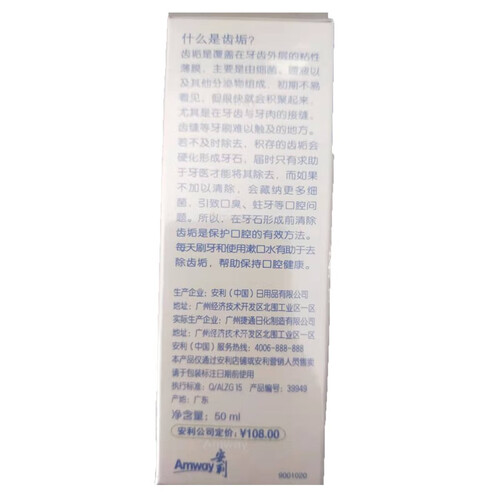 什么是齿垢？
齿垢是覆盖在牙齿外层的粘性
薄膜，主要是由细菌、唾液以
及其他分泌物组成，初期不易
看见，但很快就会积聚起来，
尤其是在牙齿与牙肉的接缝，
齿缝等牙刷难以触及的地方。
若不及时除去，积存的齿垢会
硬化形成牙石，届时只有求助
于牙医才能将其除去，而如果
不加以清除，会藏纳更多细
菌，引致口臭、蛀牙等口腔问
题。所以，在牙石形成前清除
齿垢是保护口腔的有效方法。
每天刷牙和使用漱口水有助于去
除齿垢，帮助保持口腔健康。
生产企业：安利（中国）日用品有限公司
地址：广州经济技术开发区北围工业区一区
实际生产企业：广州捷通日化制造有限公司
地址：广州经济技术开发区北围工业区一区
安利（中国）服务热线：4006-888-888
本产品仅通过安利店铺或安利营销人员售卖
请于包装标注日期前使用
执行标准：Q/ALZG 15 产品编号：39949
产地：广东
净含量：50 ml
安利公司定价：¥108.00
Amway 安利
9001020